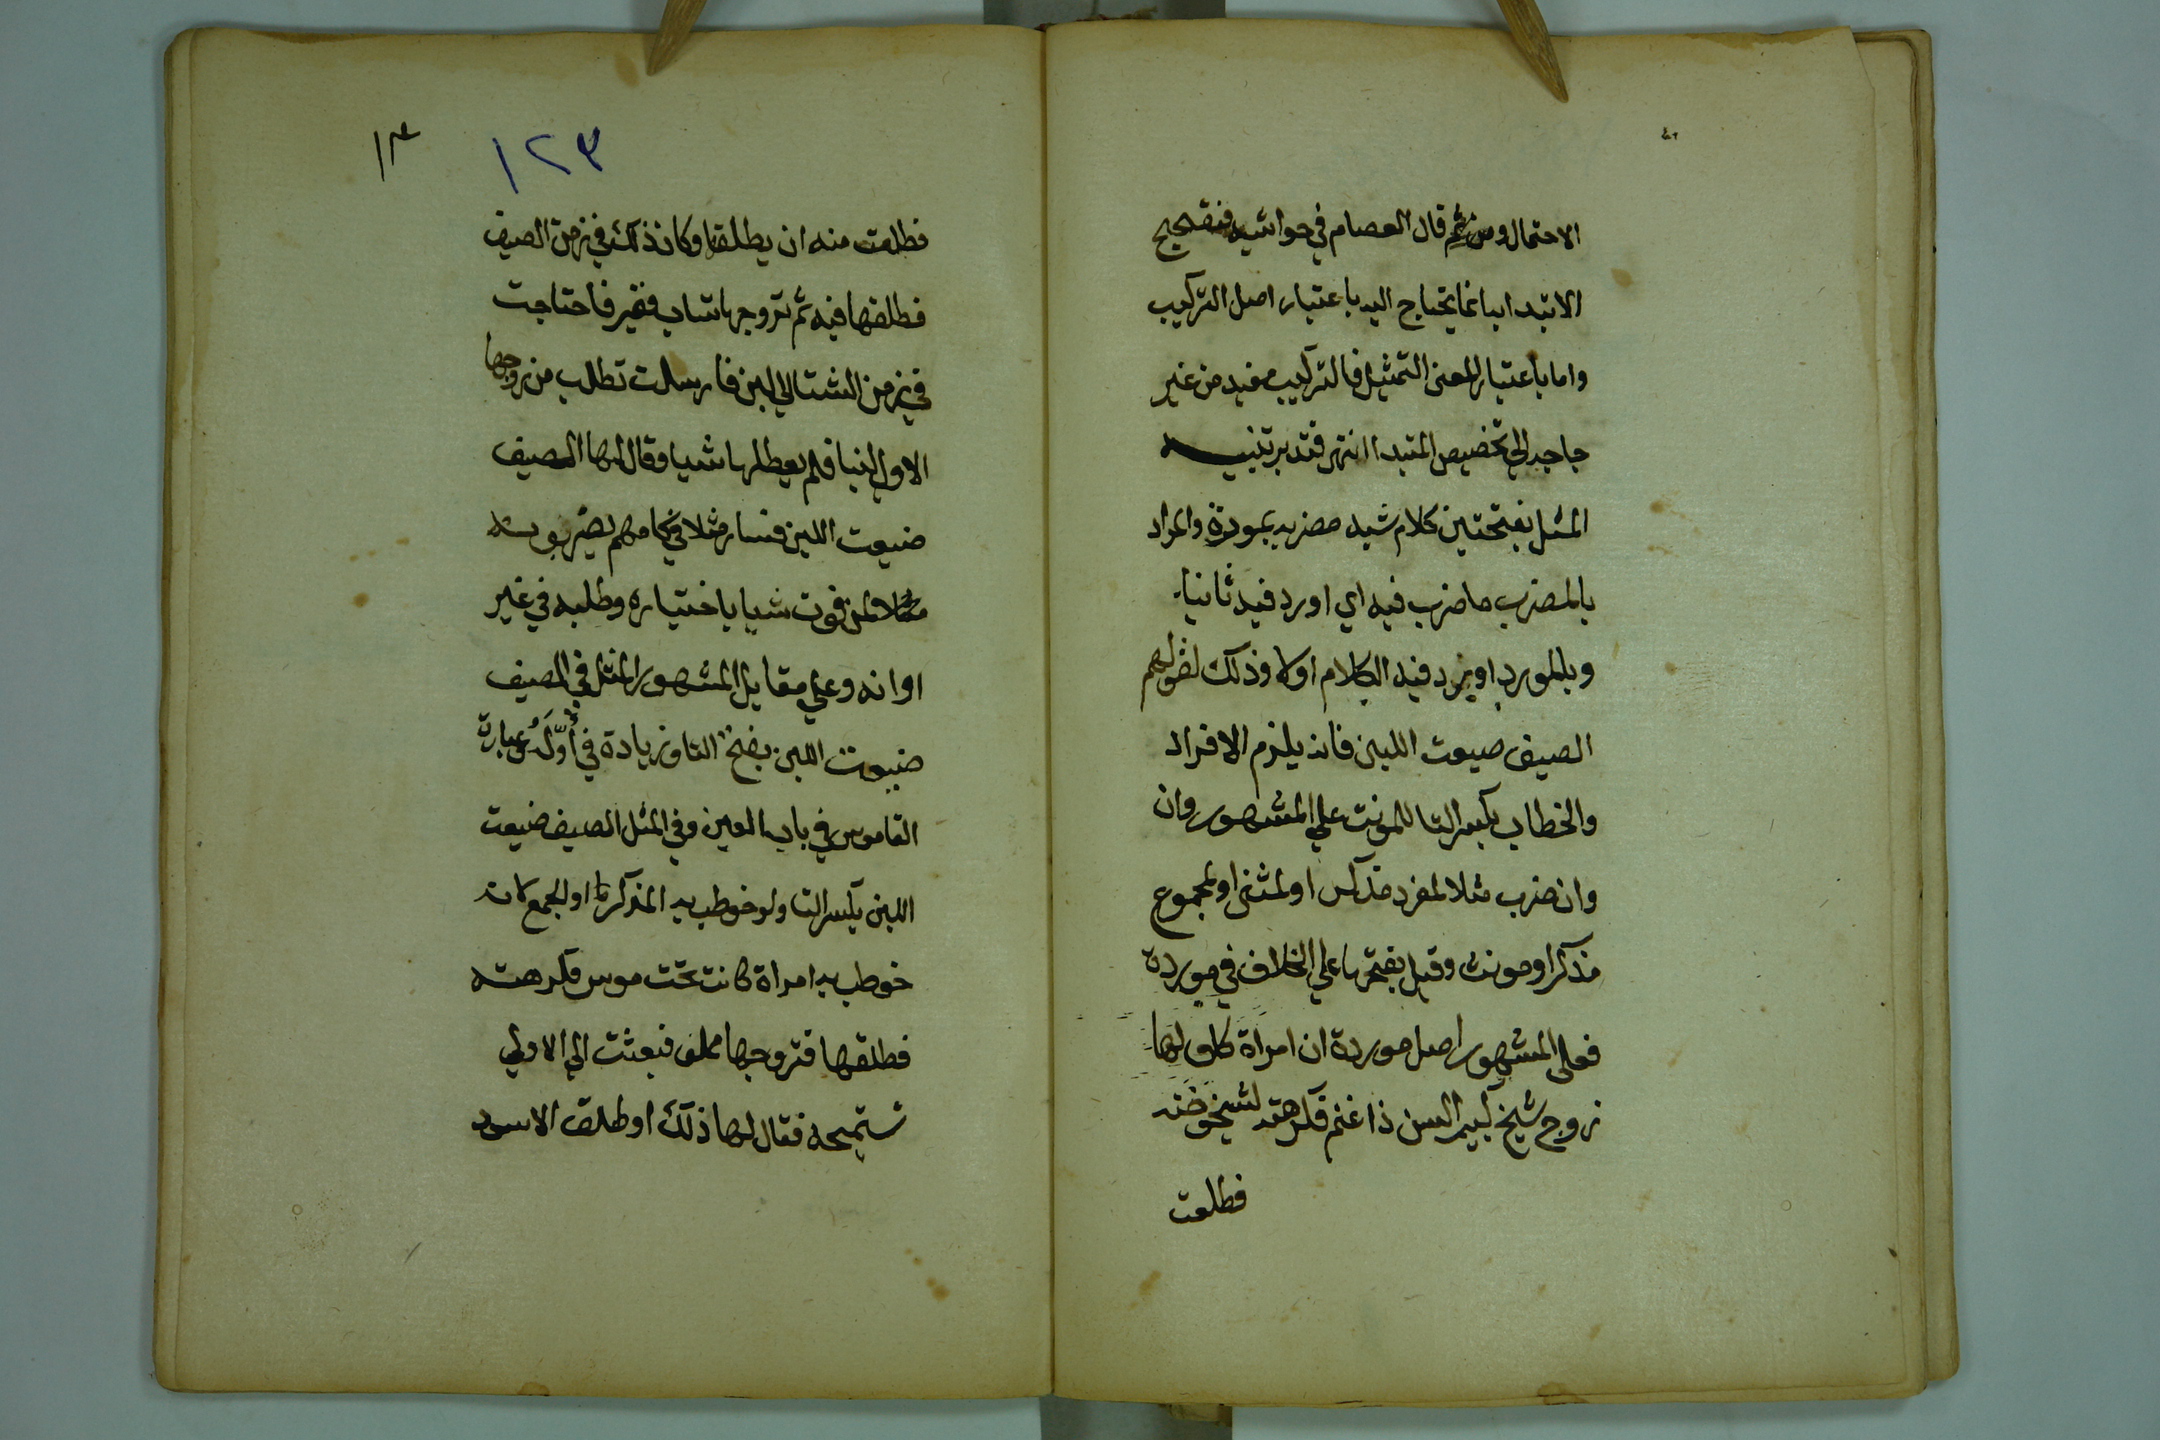 الاحتمال ومن ثم قال العصام في حواشيه فتصحيح
الابتدا ابانما يحتاج اليه باعتبار اصل التركيب
واما باعتبار المعني التمثيل فالتركيب مفيد من غير
حاجه الي تخصيص المبتدا انتهي فتدبر تنبيه
المثل بفتحتين كلام شبه مضربه بمورده والمراد
بالمضرب ما ضرب فيه اي اورد فيه ثانيا
وبالمورد اويرد فيه الكلام اولا وذلك لقولهم
الصيف صيعت اللبن فانه يلزم الافراد
والخطاب بكسر التا للمونث علي المشهور وان
وان ضرب مثلا لمفرد مذكر او لمثني او لمجموع
مذكر او مونث وقيل بفتحها علي الخلاف في مورده
فعلي المشهور اصل مورده ان امراة كان لها
زوج شيخ كبير السن ذا غنم فكرهته لشيخوخته
فطلعت
١٢٣
١٣
فطلعت منه ان يطلقها وكان ذلك في زمن الصيف
فطلقها فيه ثم تزوجها شاب فقير فاحتاجت
في زمن الشتا الي لبن فارسلت تطلب من زوجها
الاول لبنا فلم يعطلها شيا وقال لها الصيف
ضيعت اللبن فسار مثلا في كلامهم يضربونه
مثلا لمن فوت شيا باختياره وطلبه في غير
اوانه وعلي مقابل المشهور المثل في الصيف
ضيعت اللبن بفتح التا وزيادة في أوله وعبارة
القاموس في باب العين وفي المثل الصيف ضيعت
اللبن بكسر التا ولو خوطب به المذكر او الجمع لانه
خوطب به امراة كانت تحت موسر فكرهته
فطلقها فتزوجها مملق فبعثت الي الاول
تستميحه فقال لها ذلك او طلق الاسود